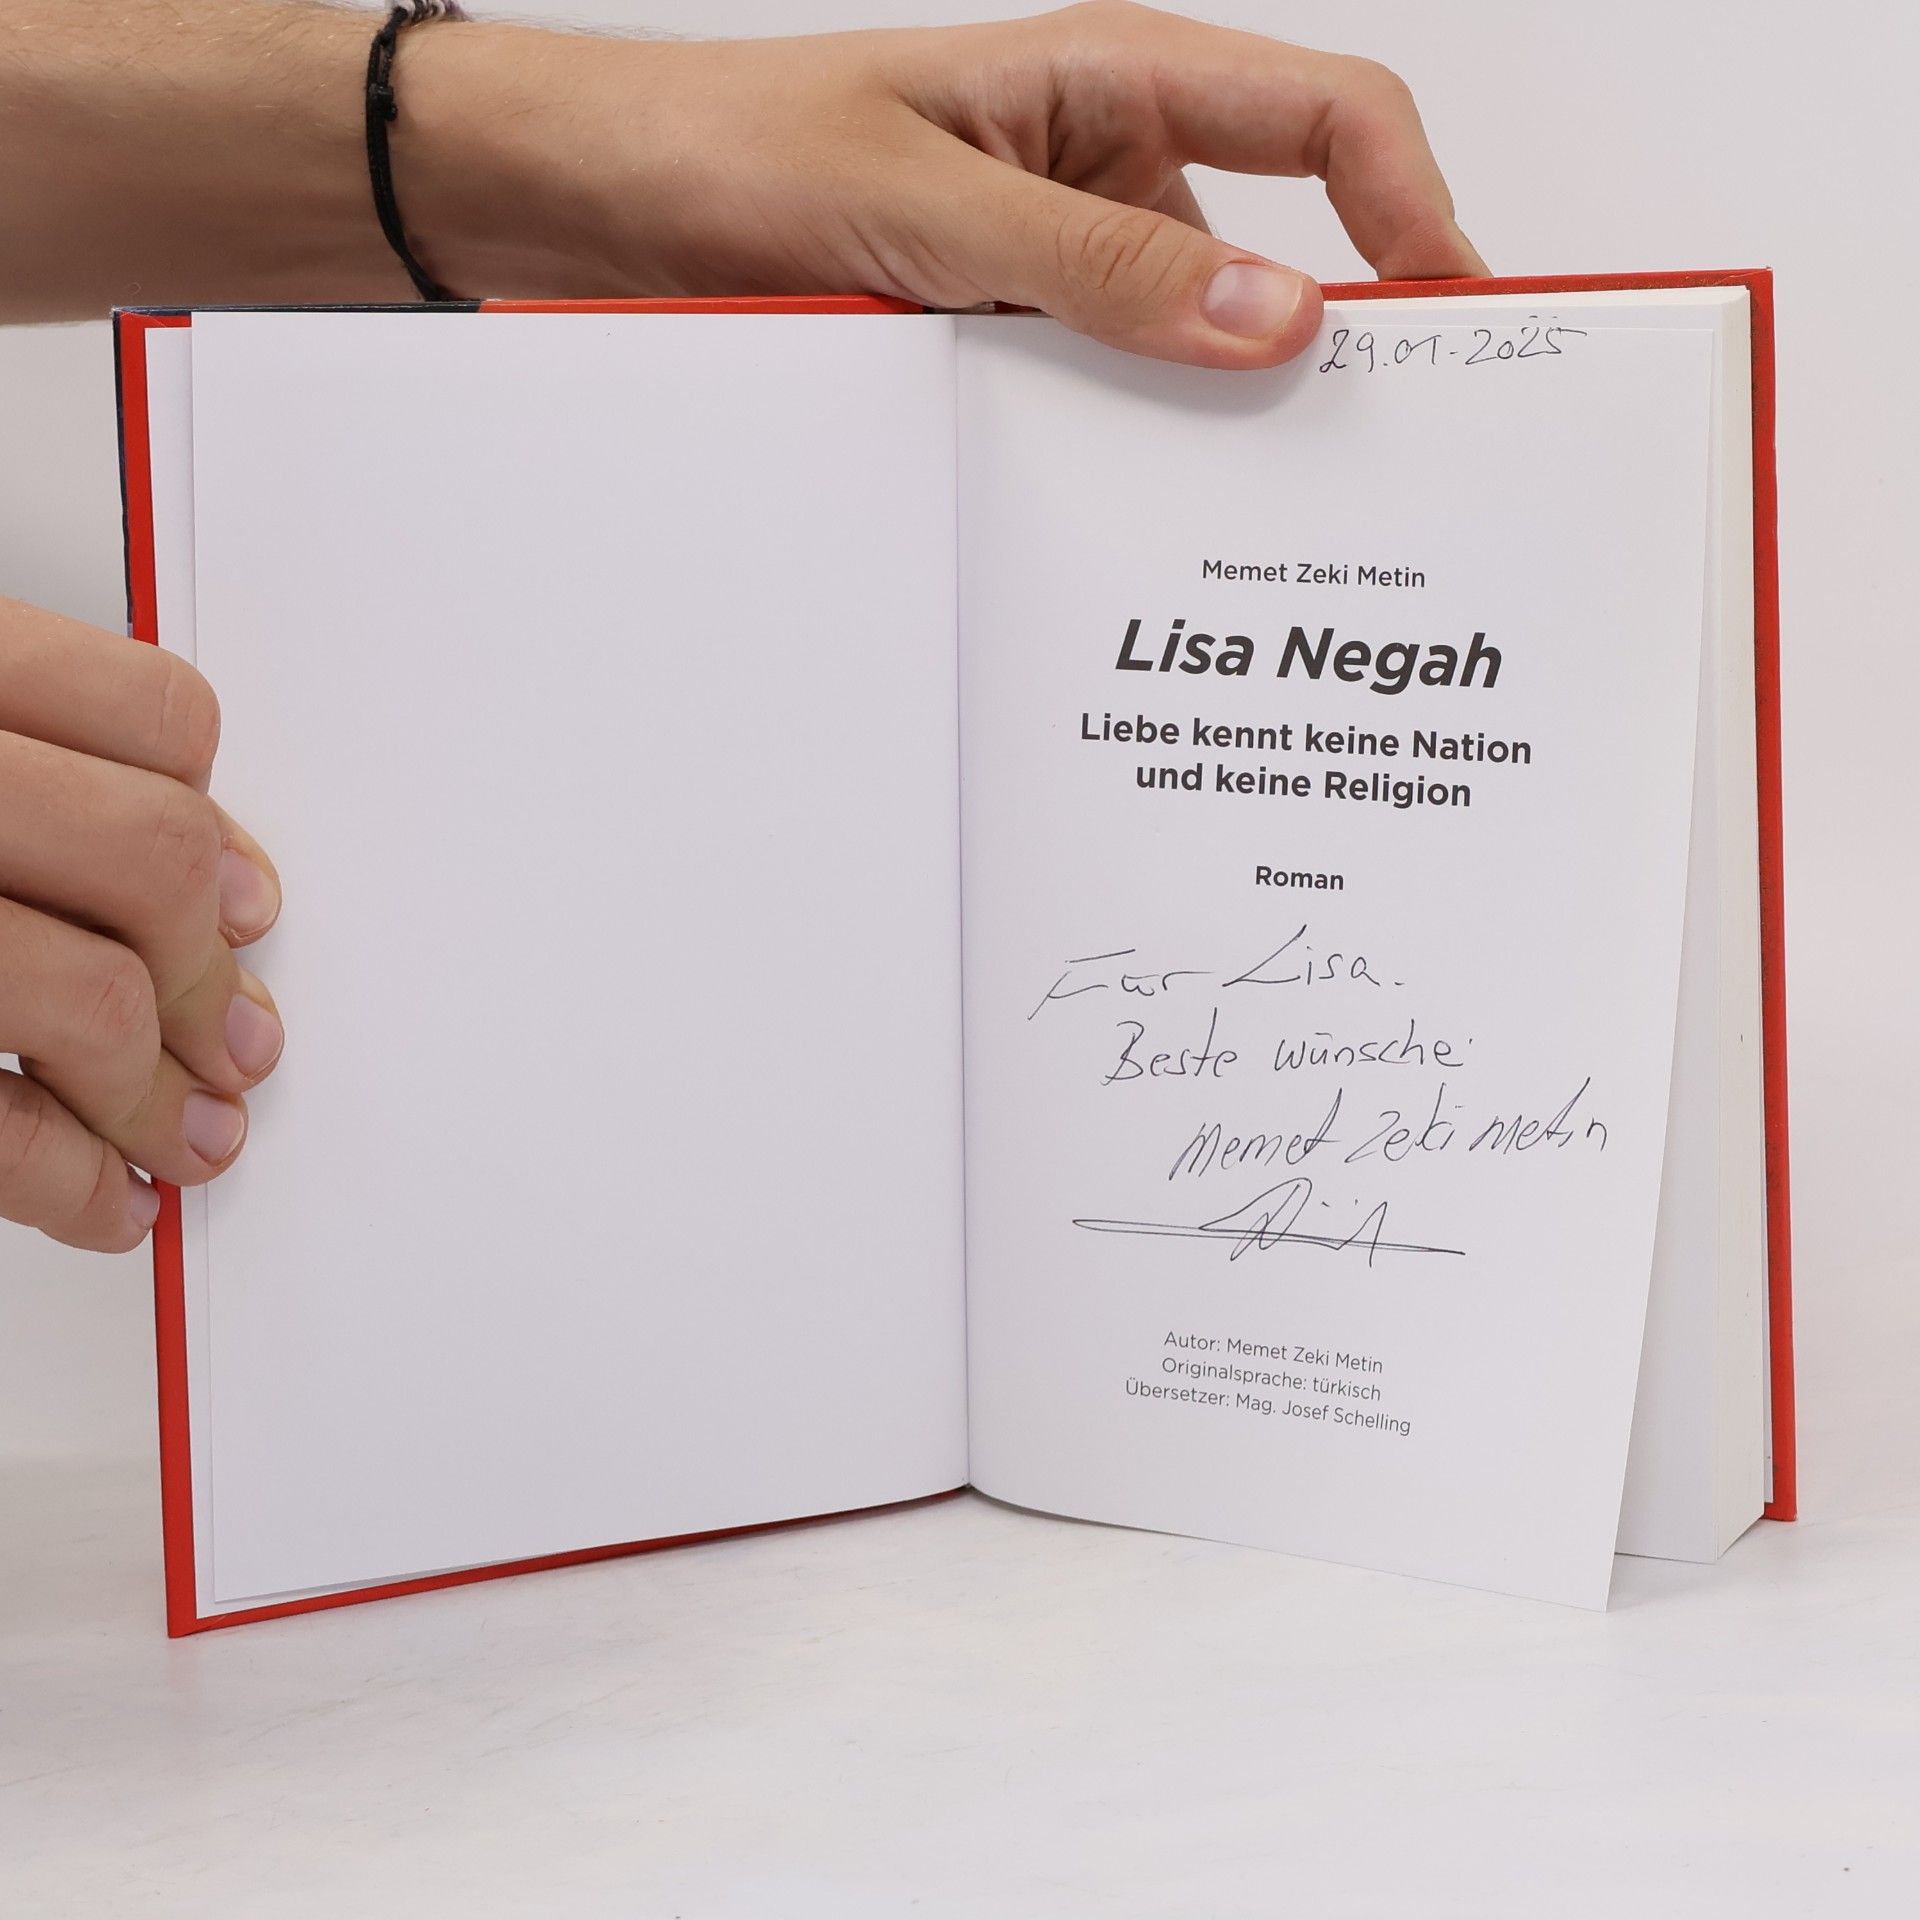 29.01-2025
Memet Zeki Metin
Lisa Negah
Liebe kennt keine Nation
und keine Religion
Roman
Für Lisa.
Beste wünsche
Memet Zeki Metin
Autor: Memet Zeki Metin
Originalsprache: türkisch
Übersetzer: Mag. Josef Schelling